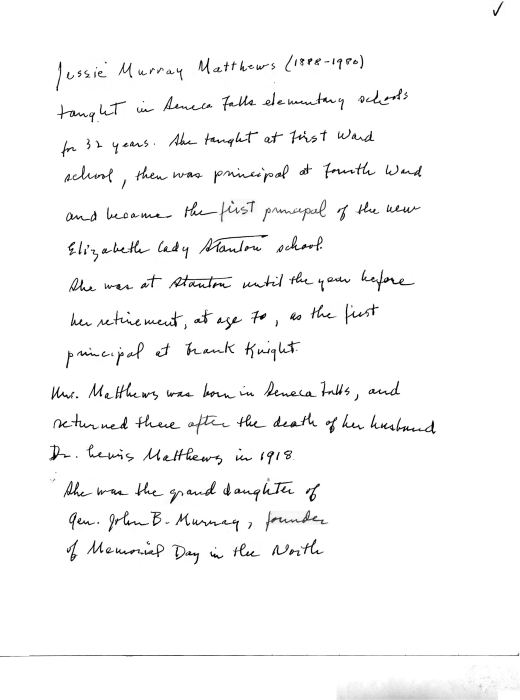 Jessie Murray Matthews (1888-1980)
taught in Seneca Falls elementary schools
for 32 years. She taught at First Ward
school, then was principal at Fourth Ward
and became the first principal of the new
Elizabeth Cady Stanton school.
She was at Stanton until the year before
her retirement, at age 70, as the first
principal at Frank Knight.
Mrs. Matthews was born in Seneca Falls, and
returned there after the death of her husband
Dr. Lewis Matthews in 1918
She was the grand daughter of
Gen. John B. Murray, founder
of Memorial Day in the North